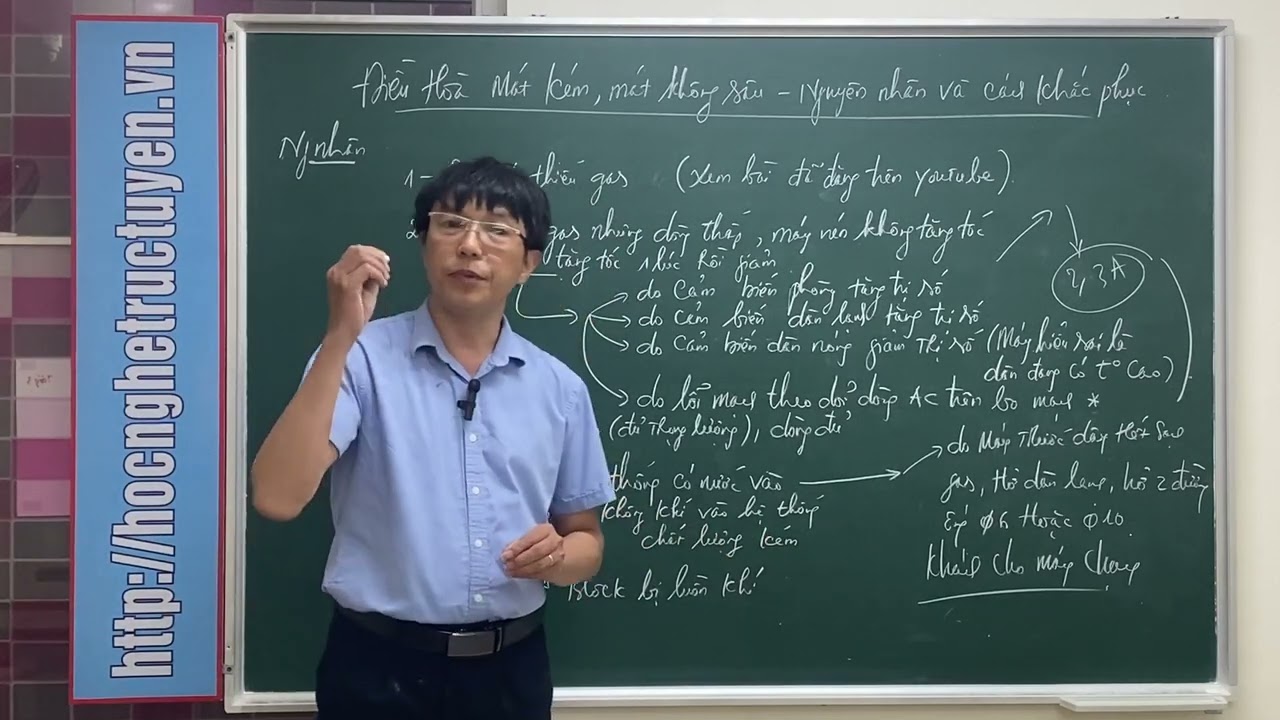 http://hocnghetructuyen.vn
Điều Hoà Mát kém, mát không sâu - Nguyên nhân và cách khắc phục
Ng nhân
1- thiếu gas (Xem bài đã đăng trên youtube)
2 gas nhưng dòng thấp, máy nén không tăng tốc
tăng tốc 1 lúc rồi giảm
2,3A
do Cảm biến phòng tăng trị số
do Cảm biến dàn lạnh tăng trị số
do Cảm biến dàn nóng giảm trị số (Máy hiểu sai là
dàn đang có t° cao)
do lỗi mạch theo dõi dòng AC trên bo mạch *
(đủ trọng lượng), dòng đủ
thống có nước vào
do Máy trước đây Hết sạch
không khí vào hệ thống
gas, Hở dàn lạnh, hở 2 đường
chất lượng kém
ống φ6 Hoặc φ10
khách cho máy chạy
Block bị luồn khí